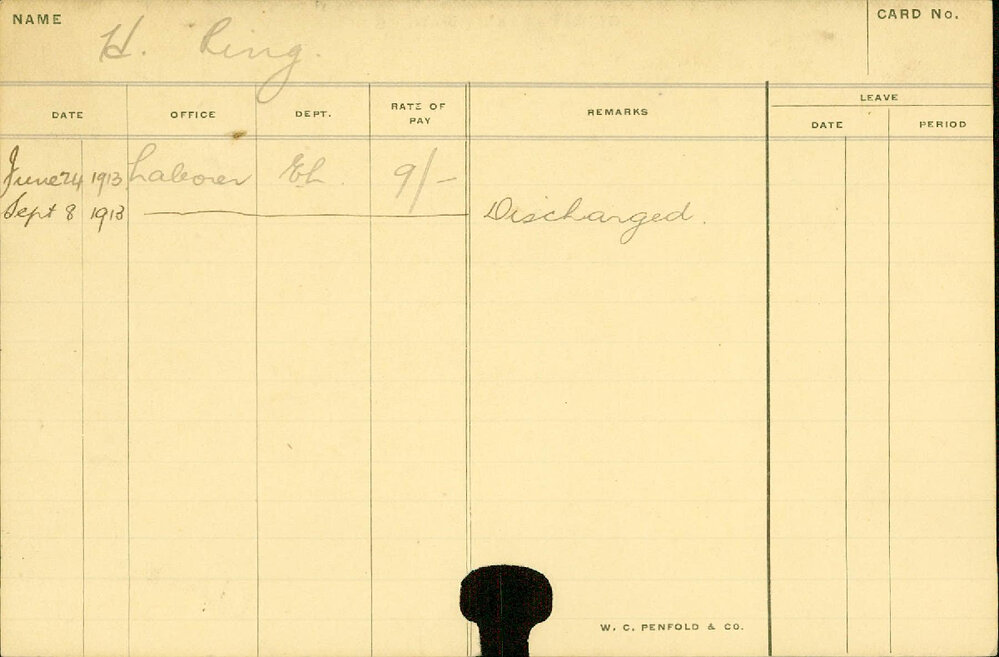 NAME H. Ring. CARD No.
DATE OFFICE DEPT. RATE OF PAY REMARKS LEAVE
DATE PERIOD
June 24 1913 Laborer 9/-
Sept 8 1913 Discharged.
W. C. PENFOLD & CO.